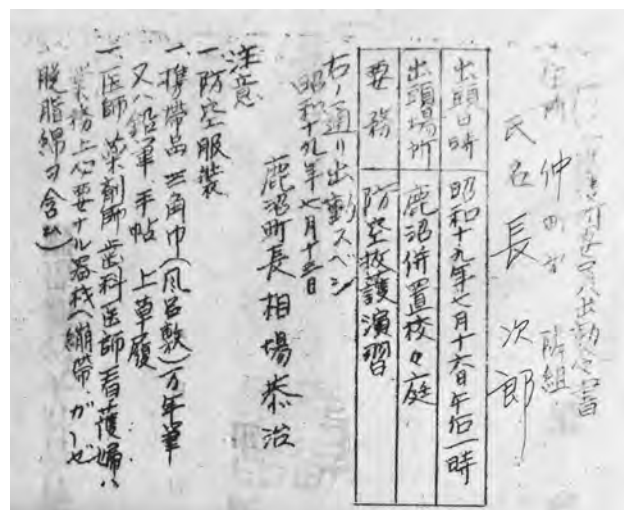 出動令書
住所 仲町 隣組
氏名 長 次郎
出頭日時 昭和十九年七月十六日午后一時
出頭場所 鹿沼併置校々庭
要務 防空救護演習
右ノ通リ出動スベシ
昭和十九年七月十三日
鹿沼町長 相場恭治
注意
一、防空服装
一、携帯品 三角巾(風呂敷)万年筆
又ハ鉛筆 手帖 上草履
一、医師 薬剤師 歯科医師 看護婦ハ
業務上必要ナル器械(繃帯、ガーゼ
脱脂綿ヲ含ム)